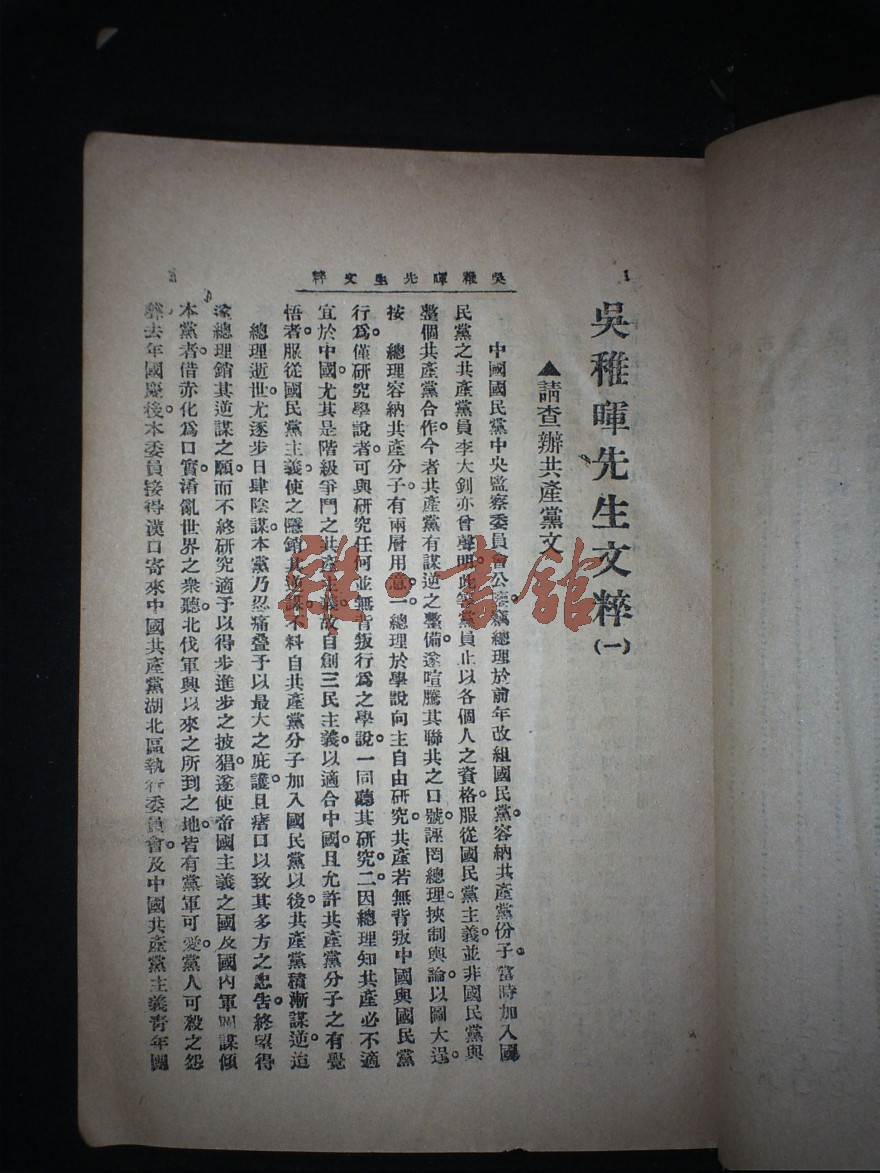 1
吳稚暉先生文粹
吳稚暉先生文粹(一)
▲請查辦共產黨文
中國國民黨中央監察委員會公鑒竊總理於前年改組國民黨。容納共產黨份子。當時加入國
民黨之共產黨員李大釗亦曾聲明。此等黨員止以各個人之資格。服從國民黨主義。並非國民黨與
整個共產黨合作。今者共產黨有謀逆之整備。遂喧騰其聯共之口號。誣罔總理。挾制輿論。以圖大逞。
按　總理容納共產分子。有兩層用意。一總理於學說向主自由研究。共產若無背叛中國與國民黨
行爲。僅研究學說者。可與研究任何並無背叛行爲之學說。一同聽其研究。二因總理知共產必不適
宜於中國。尤其是階級爭鬥之共產主義。故自創三民主義。以適合中國。且允許共產黨分子之有覺
悟者。服從國民黨主義。使之隱銷其逆謀。不料自共產黨分子加入國民黨以後。共產黨積漸謀逆。迨
總理逝世。尤逐步日肆陰謀。本黨乃忍痛叠予以最大之庇護。且瘏口以致其多方之忠告。終望得
遂總理銷其逆謀之願。而不終研究適予以得步進步之披猖。遂使帝國主義之國及國內軍閥謀傾
本黨者。借赤化爲口實。淆亂世界之衆聽。北伐軍興以來之所到之地。皆有黨軍可愛。黨人可殺之怨
辭去年國慶後。本委員接得漢口寄來中國共產黨湖北區執行委員會。及中國共產黨主義青年團
雜·書館